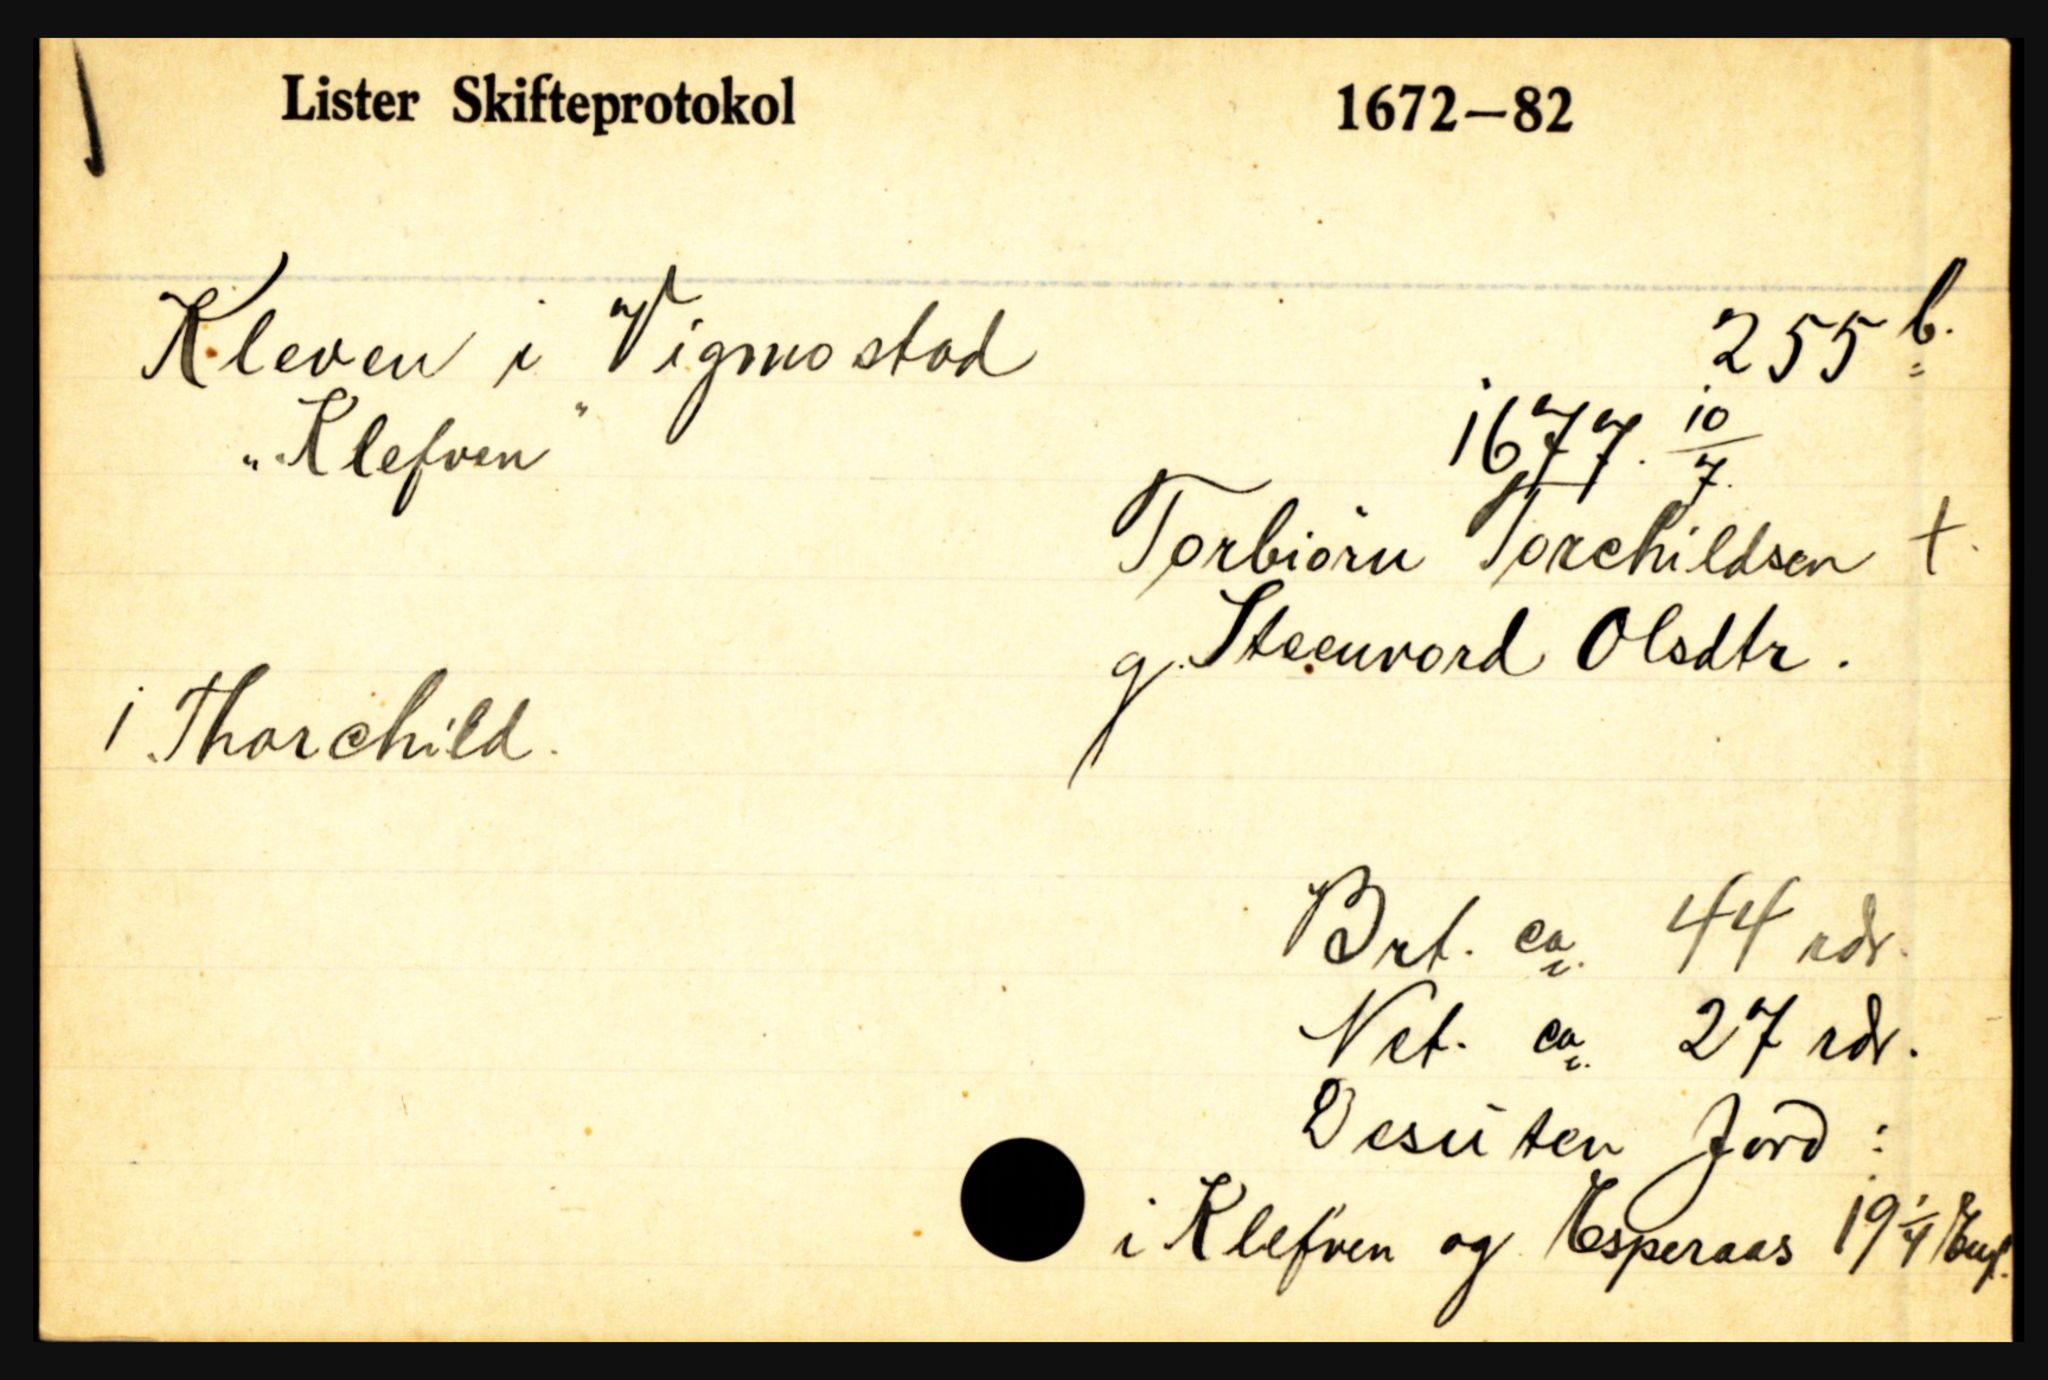 Lister Skifteprotokol 1672–82
Kleven i Vigmostad 255 b.
"Klefven" 1677. 10/7.
Torbiörn Torchildsen †.
g. Steenvord Olsdtr.
1. Thorchild.
Brt. ca. 44 rdr.
Net. ca. 27 rdr.
Desuten Jord:
i Klefven og Esperaas 19 1/4 Eng.